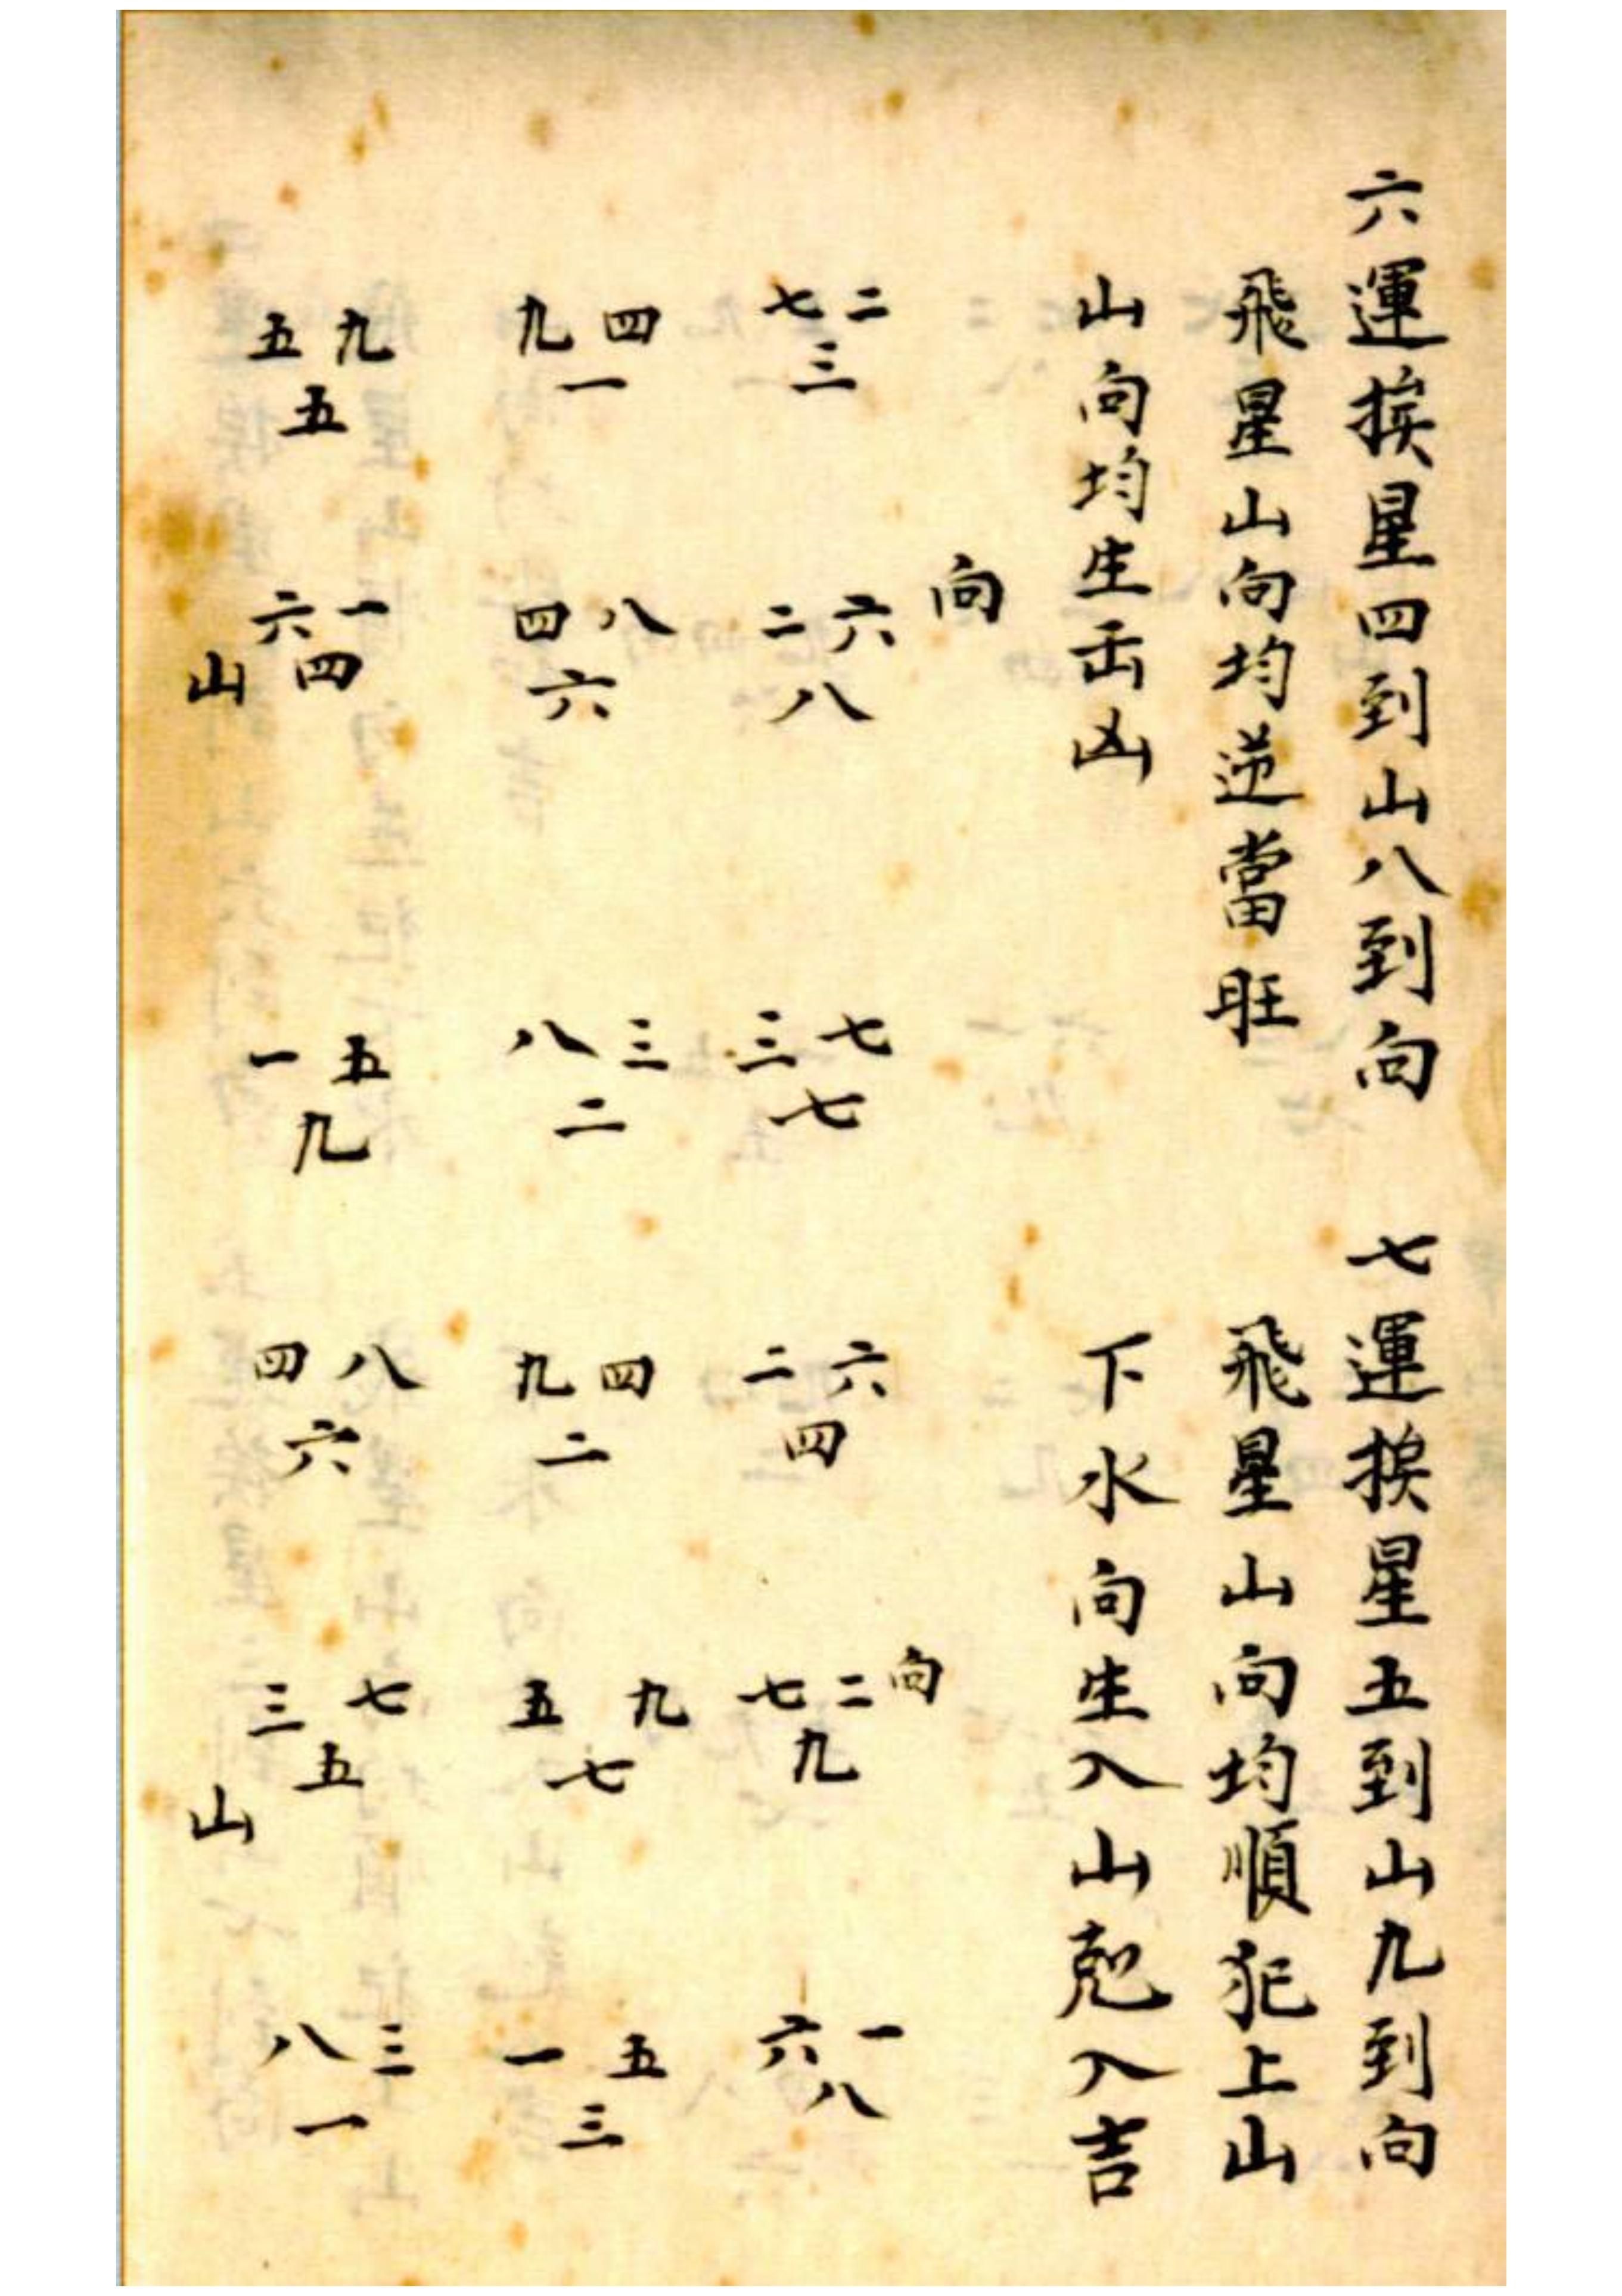 六運挨星四到山八到向
飛星山向均逆當旺
山向均生出凶
向
七二
三
二六
八
三七
七
九四
一
四八
六
八三
二
五九
五
六一
四
一五
九
山
七運挨星五到山九到向
飛星山向均順犯上山
下水向生入山尅入吉
向
二六
四
七二
九
六一
八
九四
二
五九
七
一五
三
四八
六
三七
五
八三
一
山